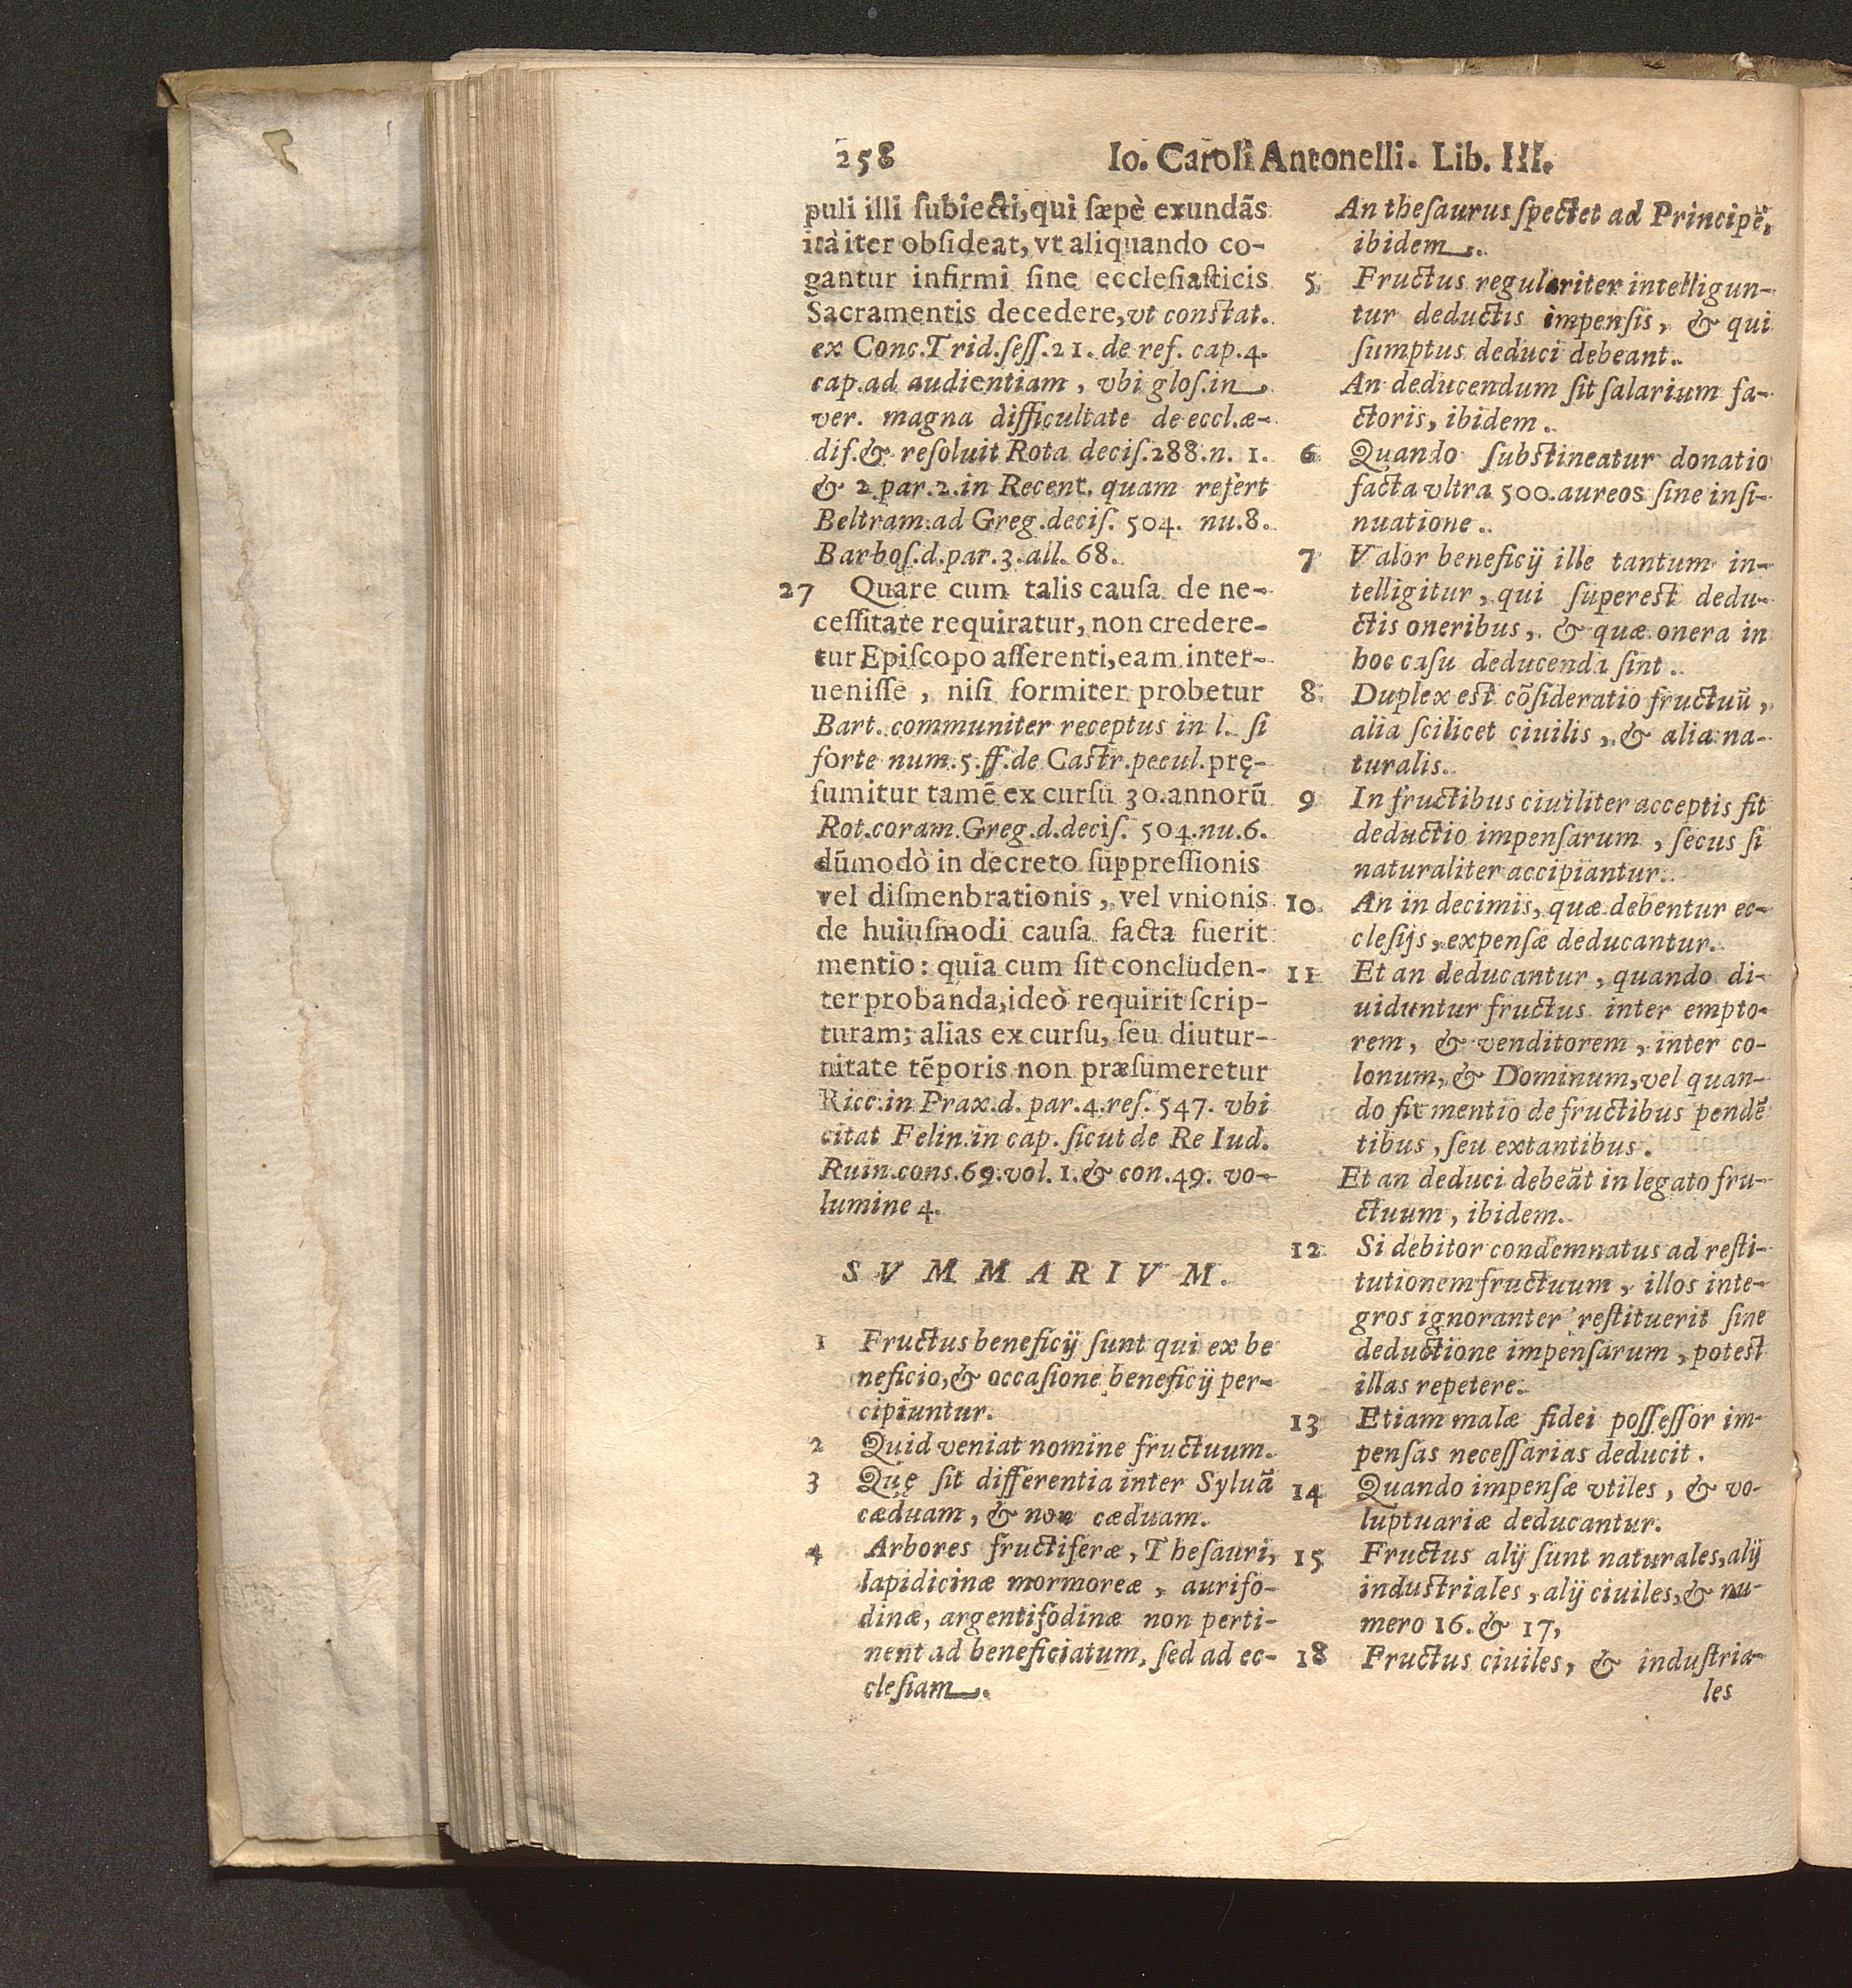 258 Io. Caroli Antonelli. Lib. III.
puli illi ſubiecti, qui ſæpè exundãs
ità iter obſideat, vt aliquando co-
gantur infirmi ſine eccleſiaſticis
Sacramentis decedere, vt constat.
ex Conc. Trid. ſeſſ. 21. de ref. cap. 4.
cap. ad audientiam, vbi gloſ. in
ver. magna difficultate de eccl. æ-
dif. & reſoluit Rota deciſ. 288. n. 1.
& 2 par. 2. in Recent. quam refert
Beltram. ad Greg. deciſ. 504. nu. 8.
Barboſ. d. par. 3. all. 68.
27 Quare cum talis cauſa de ne-
ceſſitate requiratur, non credere-
tur Epiſcopo aſſerenti, eam inter-
ueniſſe, niſi formiter probetur
Bart. communiter receptus in l. ſi
forte num. 5. ff. de Castr. pecul. pRę-
ſumitur tamẽ ex curſu 30. annorũ
Rot. coram Greg. d. deciſ. 504. nu. 6.
dũmodò in decreto ſuppreſſionis
vel diſmenbrationis, vel vnionis
de huiuſmodi cauſa facta fuerit
mentio: quia cum ſit concluden-
ter probanda, ideò requirit ſcrip-
turam; alias ex curſu, ſeu diutur-
nitate tẽporis non præſumeretur
Ricc. in Prax. d. par. 4. reſ. 547. vbi
citat Felin. in cap. ſicut de Re Iud.
Ruin. cons. 69. vol. 1. & con. 49. vo-
lumine 4.
SVMMARIVM.
1 Fructus beneficij ſunt qui ex be
neficio, & occaſione beneficij per-
cipiuntur.
2 Quid veniat nomine fructuum.
3 Quę ſit differentia inter Syluã
cæduam, & non cæduam.
4 Arbores fructiferæ, Theſauri,
lapidicinæ mormoreæ, aurifo-
dinæ, argentifodinæ non perti-
nent ad beneficiatum, ſed ad ec-
cleſiam.
An theſaurus ſpectet ad Principẽ,
ibidem.
5 Fructus regulariter intelligun-
tur deductis impenſis, & qui
ſumptus deduci debeant.
An deducendum ſit ſalarium fa-
ctoris, ibidem.
6 Quando ſubstineatur donatio
facta vltra 500. aureos ſine inſi-
nuatione.
7 Valor beneficij ille tantum in-
telligitur, qui ſuperest dedu-
ctis oneribus, & quæ onera in
hoc caſu deducenda ſint.
8 Duplex est cõſideratio fructuũ,
alia ſcilicet ciuilis, & alia na-
turalis.
9 In fructibus ciuiliter acceptis fit
deductio impenſarum, ſecus ſi
naturaliter accipiantur.
10 An in decimis, quæ debentur ec-
cleſijs, expenſæ deducantur.
11 Et an deducantur, quando di-
uiduntur fructus inter empto-
rem, & venditorem, inter co-
lonum, & Dominum, vel quan-
do fit mentio de fructibus pendẽ
tibus, ſeu extantibus.
Et an deduci debeãt in legato fru-
ctuum, ibidem.
12 Si debitor condemnatus ad reſti-
tutionem fructuum, illos inte-
gros ignoranter reſtituerit ſine
deductione impenſarum, potest
illas repetere.
13 Etiam malæ fidei poſſeſſor im-
penſas neceſſarias deducit.
14 Quando impenſæ vtiles, & vo-
luptuariæ deducantur.
15 Fructus alij ſunt naturales, alij
industriales, alij ciuiles, & nu-
mero 16. & 17,
18 Fructus ciuiles, & induſtria-
les